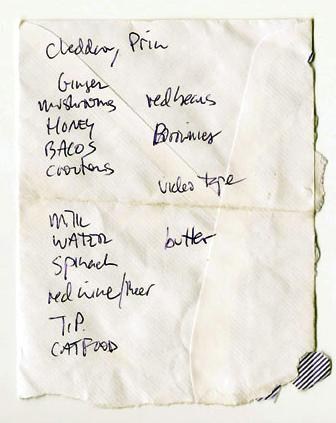 cheddar, Prim
Ginger
mushrooms red beans
HONEY Brownies
BACOS
croutons
video tape
MILK
WATER butter
Spinach
red wine/beer
T.P.
CATFOOD